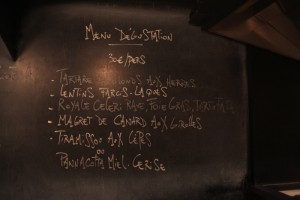 MENU DÉGUSTATION
30€/PERS
- TARTARE AUX HERBES
- LENTINS FARCIS - LAQUÉS
- ROYALE CELERI RAVE, FOIE GRAS,
- MAGRET DE CANARD AUX GIROLLES
- TIRAMISSOU AUX CÈPES
OU
PANNACOTTA MIEL-CERISE